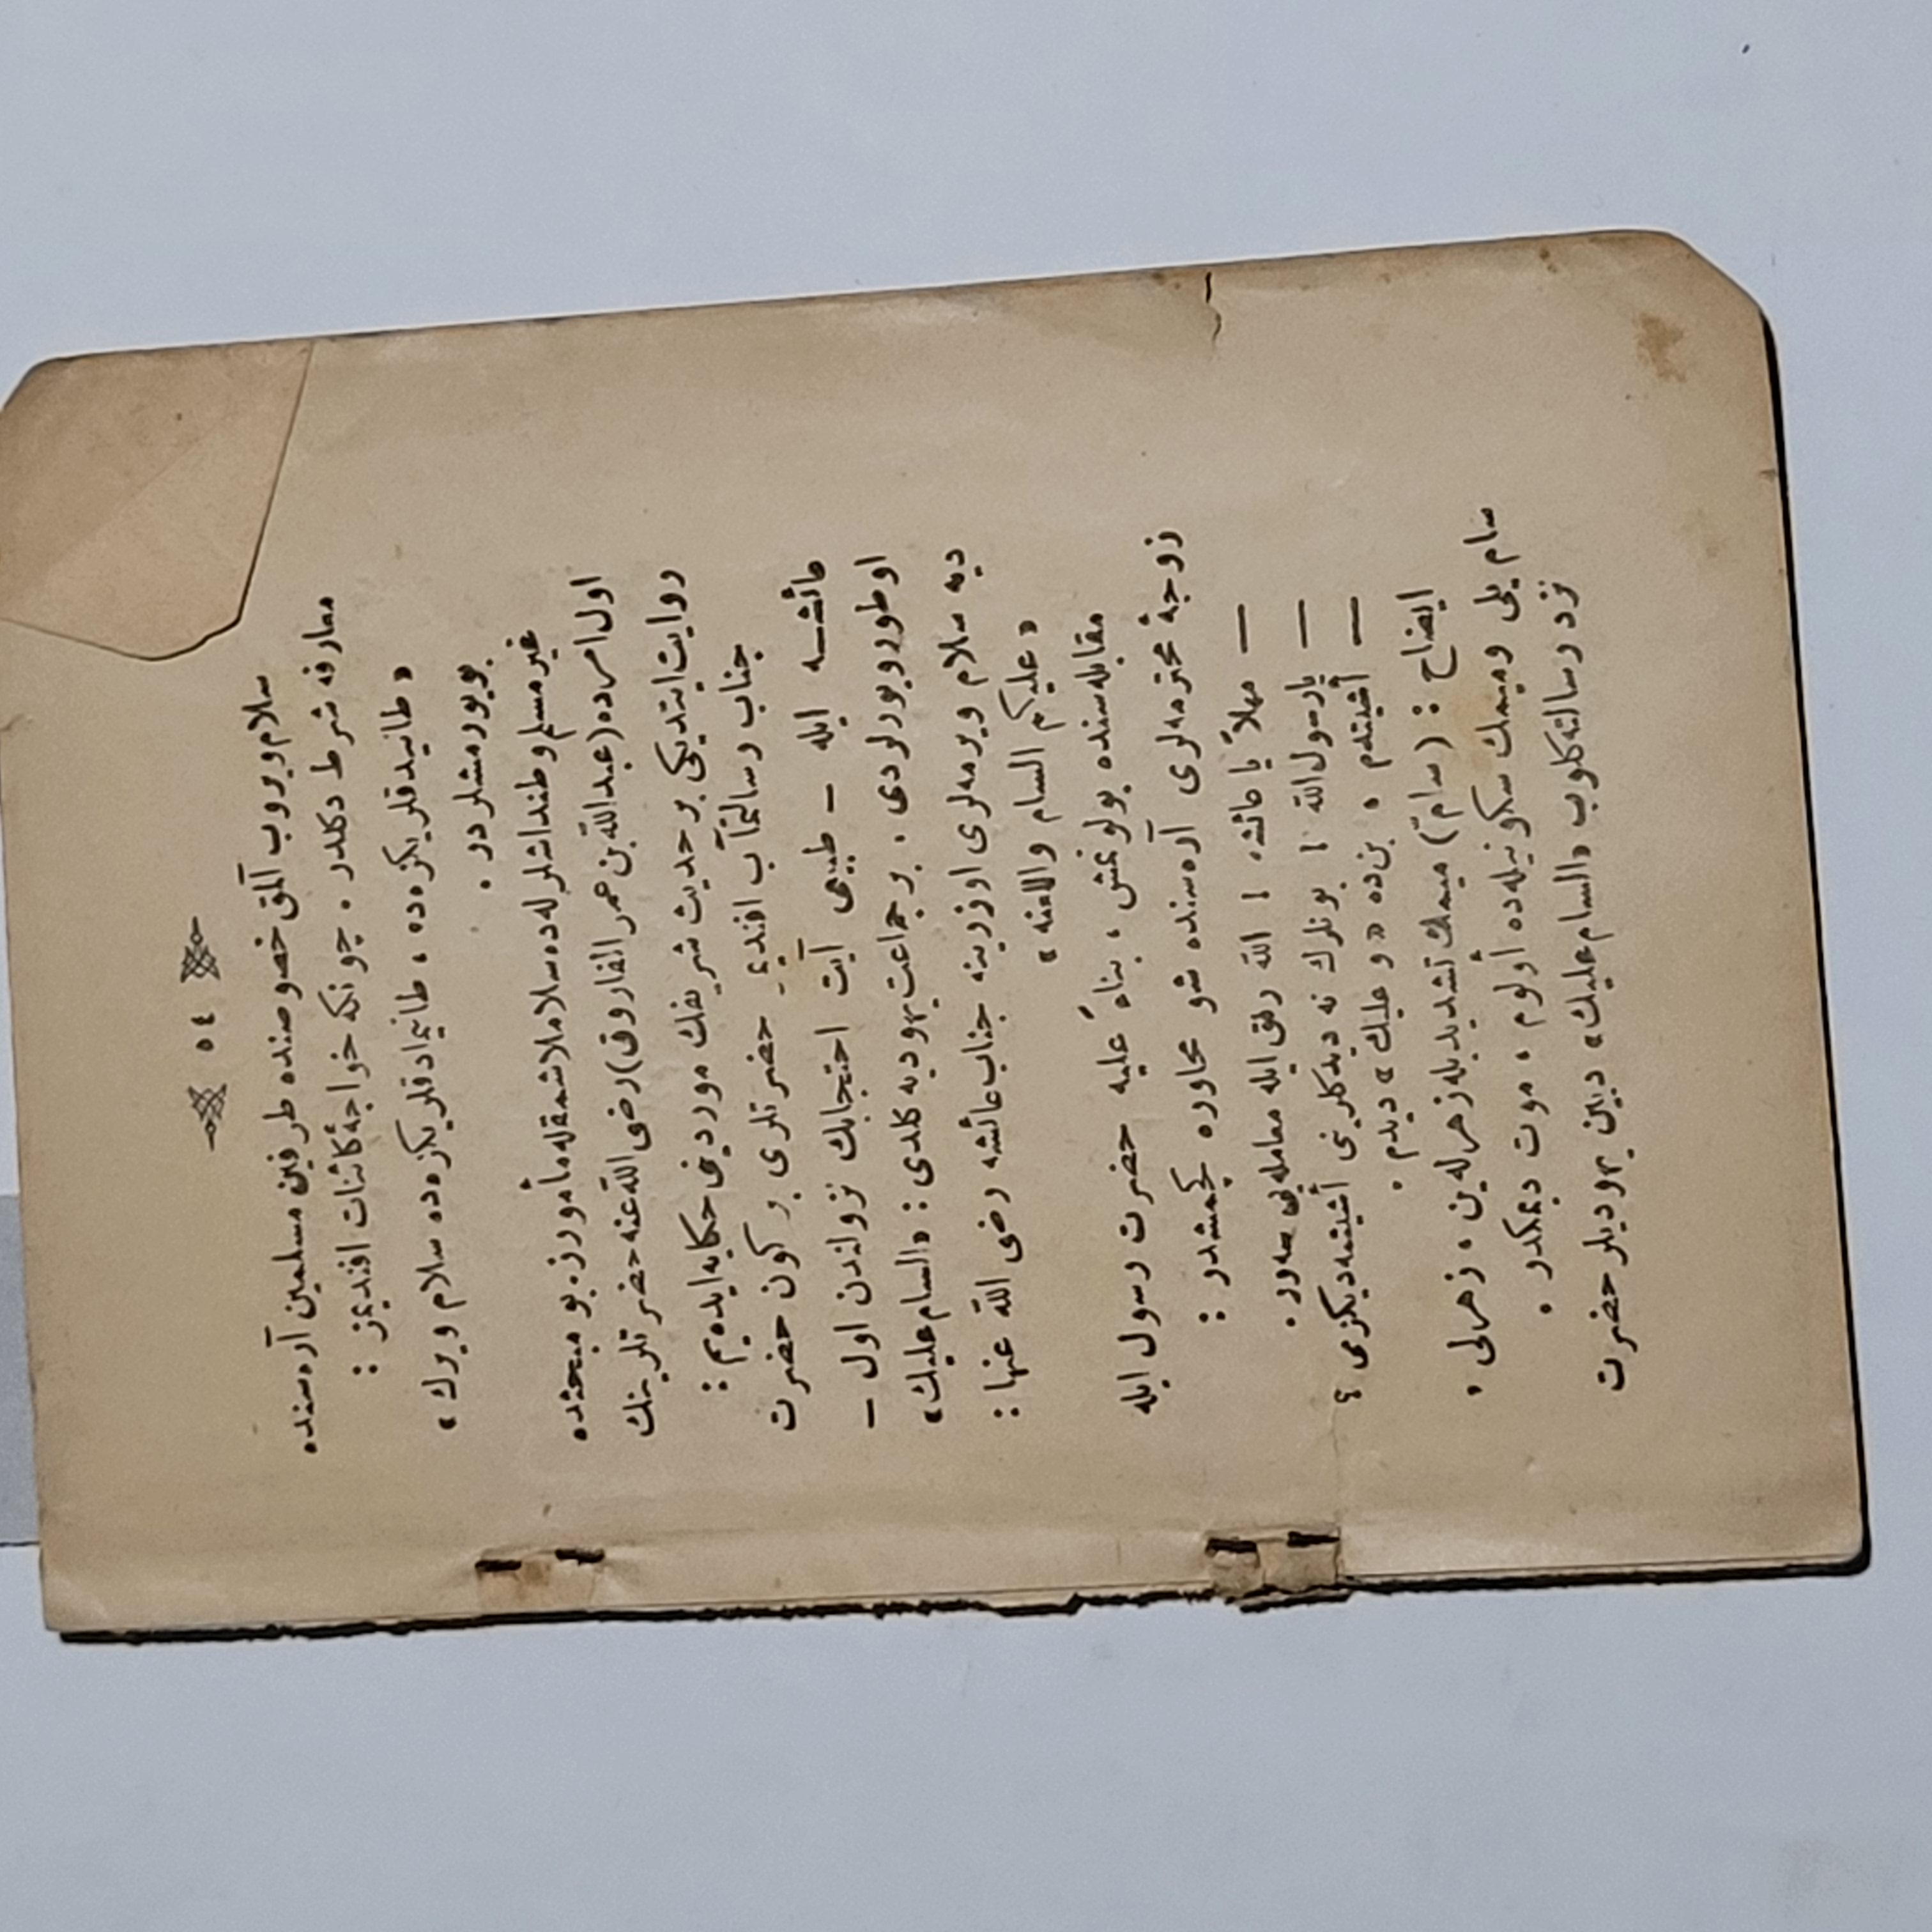 ٥٤
سلام ویروب آلمق خصوصنده طرفین مسلمین آره‌سنده
معارفه شرط دکلدر . چونکه خواجهٔ کائنات افندیمز :
« طانیدقلریکزه‌ده ، طانیمادقلریکزه‌ده سلام ویرك »
بویورمشلردر .
غیر مسلم وطنداشلرله‌ده سلاملاشمقله مأمورز . بو مبحثده
اول امرده (عبدالله بن عمر الفاروق) رضی الله عنه حضرتلرینك
روایت ایتدیکی بر حدیث شریفك موردینی حکایه ایده‌یم :
جناب رسالتمآب افندیمز حضرتلری بر کون حضرت
عائشــه ایله – طبیعی آیت احتجابك نزولندن اول –
اوطورویورلردی . بر جماعت یهودیه کلدی : « السام علیك »
دیه سلام ویرمه‌لری اوزرینه جناب عائشه رضی الله عنها :
« علیکم السام واللعنه »
مقابله‌سنده بولونمش ، بناءً علیه حضرت رسول ایله
زوجهٔ محترمه‌لری آره‌سنده شو محاوره کچمشدر :
— مهلاً یا عائشه ! الله رفق ایله معامله‌یی سه‌ور .
— یارسول الله ! بونلرك نه دیدکلرینی أشیتمه‌دیکزمی ؟
— أشیتدم ، بن‌ده « وعلیك » دیدم .
ایضاح : (سامّ) میمك تشدیدیله زهرله‌ین ، زهرلی ،
سام یلی ومیمك سکونیله‌ده أولوم ، موت دیمکدر .
نزد رسالته کلوب « السام علیك » دیین یهودیلر حضرت